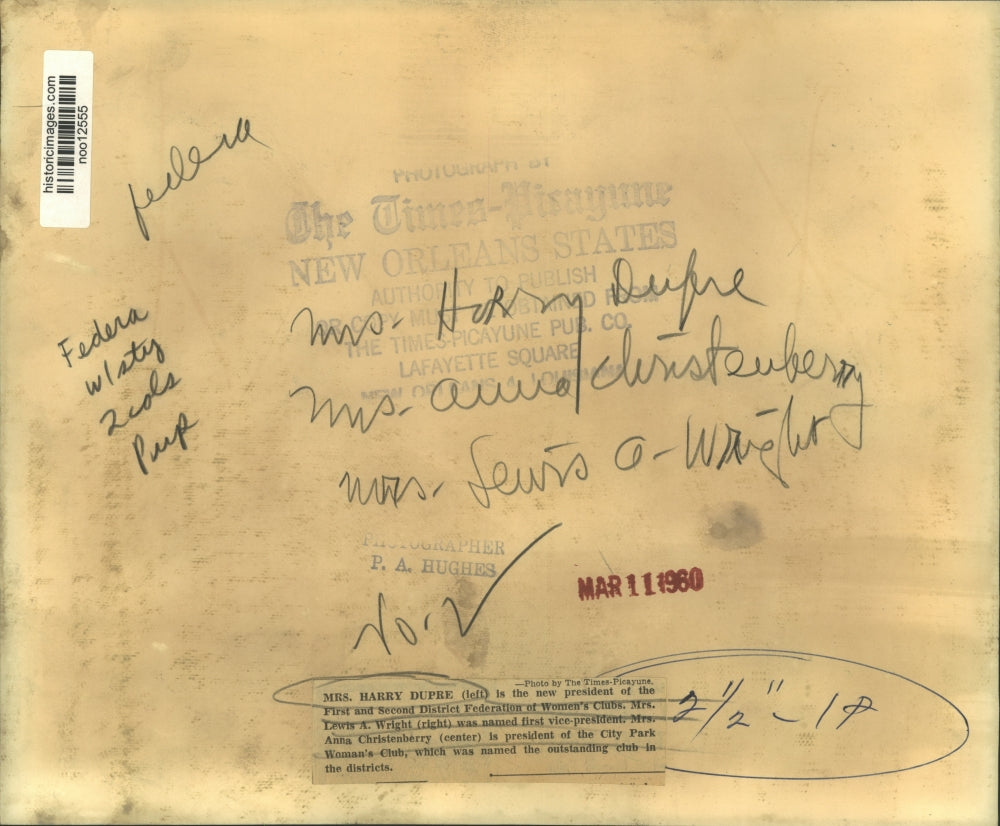 historicimages.com
noo12555
federa
PHOTOGRAPH BY
The Times-Picayune
NEW ORLEANS STATES
AUTHORITY TO PUBLISH
OR COPY MUST BE OBTAINED FROM
THE TIMES-PICAYUNE PUB. CO.
LAFAYETTE SQUARE
NEW ORLEANS 4, LOUISIANA
Mrs. Harry Dupre
Federa
w/sty
2 cols
Pup
Mrs. Anna Christenberry
Mrs. Lewis A. Wright
PHOTOGRAPHER
P. A. HUGHES
MAR 11 1960
No. V
—Photo by The Times-Picayune.
MRS. HARRY DUPRE (left) is the new president of the
First and Second District Federation of Women's Clubs. Mrs.
Lewis A. Wright (right) was named first vice-president. Mrs.
Anna Christenberry (center) is president of the City Park
Woman's Club, which was named the outstanding club in
the districts.
2 1/2" - 18